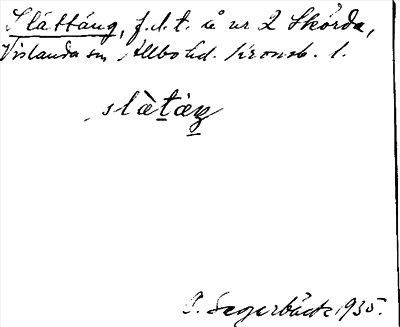 Slåttäng, f.d.t. å nr 2 Skörda,
Vislanda sn Allbo hd. Kronob. l.
slàtäŋ
O. Segerbäck 1935.